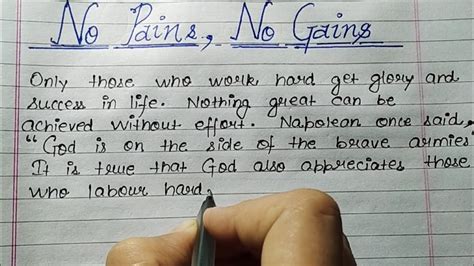 No Pains, No Gains
Only those who work hard get glory and
success in life. Nothing great can be
achieved without effort. Napolean once said,
"God is on the side of the brave armies
It is true that God also appreciates those
who labour hard.